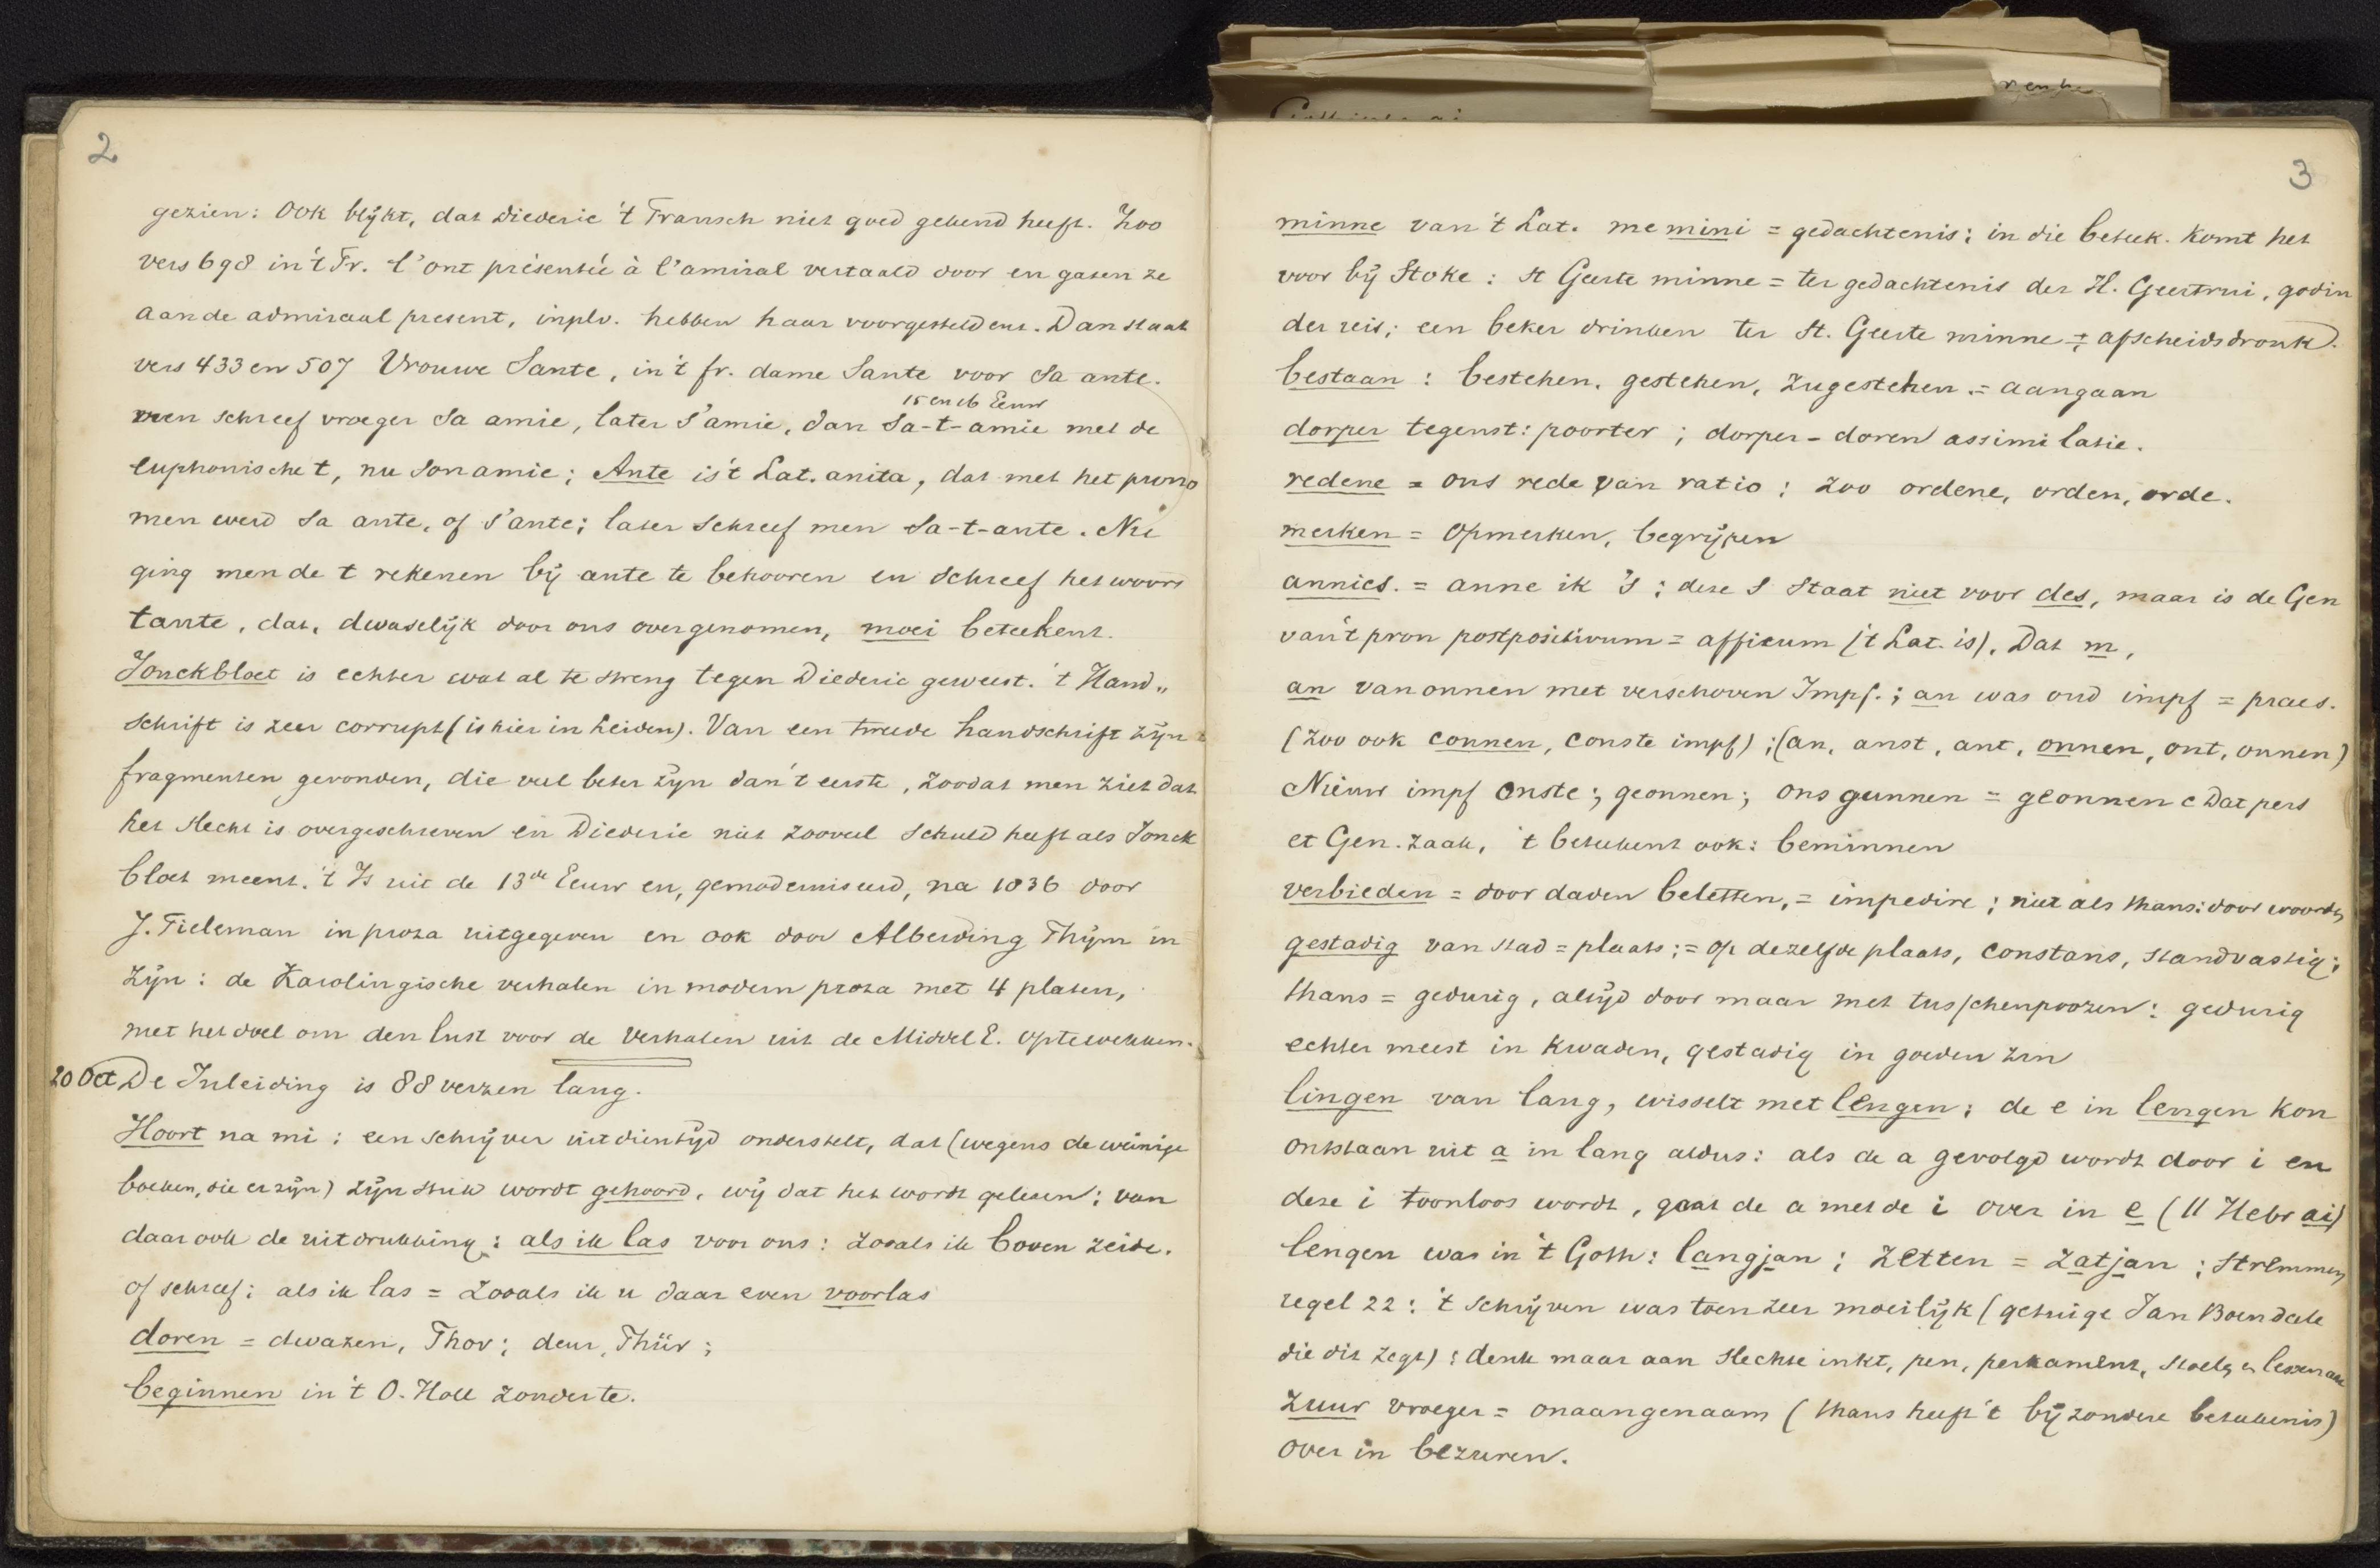 2
gezien: Ook blijkt, dat Diederic 't Fransch niet goed gekend heeft. Zoo
vers 698 in 't Fr. l'ont présentée à l'amiral vertaald door en gaven ze
aan de admiraal present, inplv. hebben haar voorgesteld enz. Dan staat
vers 433 en 507 Vrouwe Sante, in 't fr. dame Sante voor sa ante.
15 en 16 Eeuw
men schreef vroeger sa amie, later s'amie, dan sa-t-amie met de
euphonische t, nu son amie; Ante is 't Lat. anita, dat met het prono
men werd sa ante, of s'ante; later schreef men sa-t-ante. Nu
ging men de t rekenen bij ante te behooren en schreef het woord
tante, dat, dwaselijk door ons overgenomen, moei beteekent.
Jonckbloet is echter wat al te streng tegen Diederic geweest. 't Hand„
schrift is zeer corrupt (is hier in Leiden). Van een tweede handschrift zijn
fragmenten gevonden, die veel beter zijn dan 't eerste, zoodat men ziet dat
het slecht is overgeschreven en Diederic niet zooveel schuld heeft als Jonck
bloet meent. 't Is uit de 13de Eeuw en, gemoderniseerd, na 1836 door
J. Tieleman in proza uitgegeven en ook door Alberding Thijm in
zijn: de Karolingische verhalen in modern proza met 4 platen,
met het doel om den lust voor de verhalen uit de Middel E. op te wekken.
20 Oct De Inleiding is 88 verzen lang.
Hoort na mi: een schrijver uit dien tijd onderstelt, dat (wegens de weinige
boeken, die er zijn) zijn stuk wordt gehoord, wij dat het wordt gelezen; van
daar ook de uitdrukking: als ik las voor ons: zooals ik boven zeide.
of schreef: als ik las = zooals ik u daar even voorlas
doren = dwazen, Thor; deur, Thür;
beginnen in 't O. Holl zonder te.
3
minne van 't Lat. memini = gedachtenis; in die beteek. komt het
voor bij Stoke: St Geerte minne = ter gedachtenis der H. Geertrui, godin
der reis; een beker drinken ter St. Geerte minne = afscheidsdronk.
bestaan: bestehen, gestehen, zugestehen. = aangaan
dorper tegenst: poorter; dorper - doren assimilatie.
redene = ons rede van ratio; zoo ordene, orden, orde.
merken = opmerken, begrijpen
annics. = anne ik 's; deze s staat niet voor des, maar is de Gen
van 't pron postpositivum = affixum ('t Lat. is). Dat m,
an van onnen met verschoven Impf.; an was oud impf = praes.
(zoo ook connen, conste impf); (an, anst, ant, onnen, ont, onnen)
Nieuw impf onste; geonnen; ons gunnen = geonnen c Dat pers
et Gen. zaak, 't beteekent ook: beminnen
verbieden = door daden beletten, = impedire; niet als thans: door woorden
gestadig van stad = plaats; = op dezelfde plaats, constans, standvastig;
thans = gedurig, altijd door maar met tusschenpoozen: gedurig
echter meest in kwaden, gestadig in goeden zin
lingen van lang, wisselt met lengen; de e in lengen kon
ontstaan uit a in lang aldus: als de a gevolgd wordt door i en
deze i toonloos wordt, gaat de a met de i over in e (ll Hebr ai)
lengen was in 't Goth: langjan; zetten = zatjan; stremmen
regel 22: 't schrijven was toen zeer moeilijk (getuige Jan Boendale
die dit zegt): denk maar aan slechte inkt, pen, perkament, stoelen, lessenaar
zuur vroeger = onaangenaam (thans heeft 't bijzondere beteekenis)
over in bezuren.